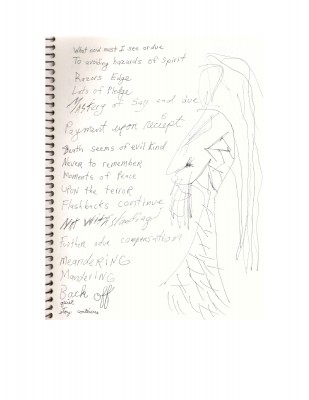 What and most I see or due
To avoiding hazards of spirit
Razors Edge
Lots of Pledge
History of sug and due
Payment upon receipt
Death seems of evil kind
Never to remember
Moments of Peace
Upon the terror
Flashbacks continue
Not Withstanding
Further due compensation
Meandering
Mandering
Back off
continue